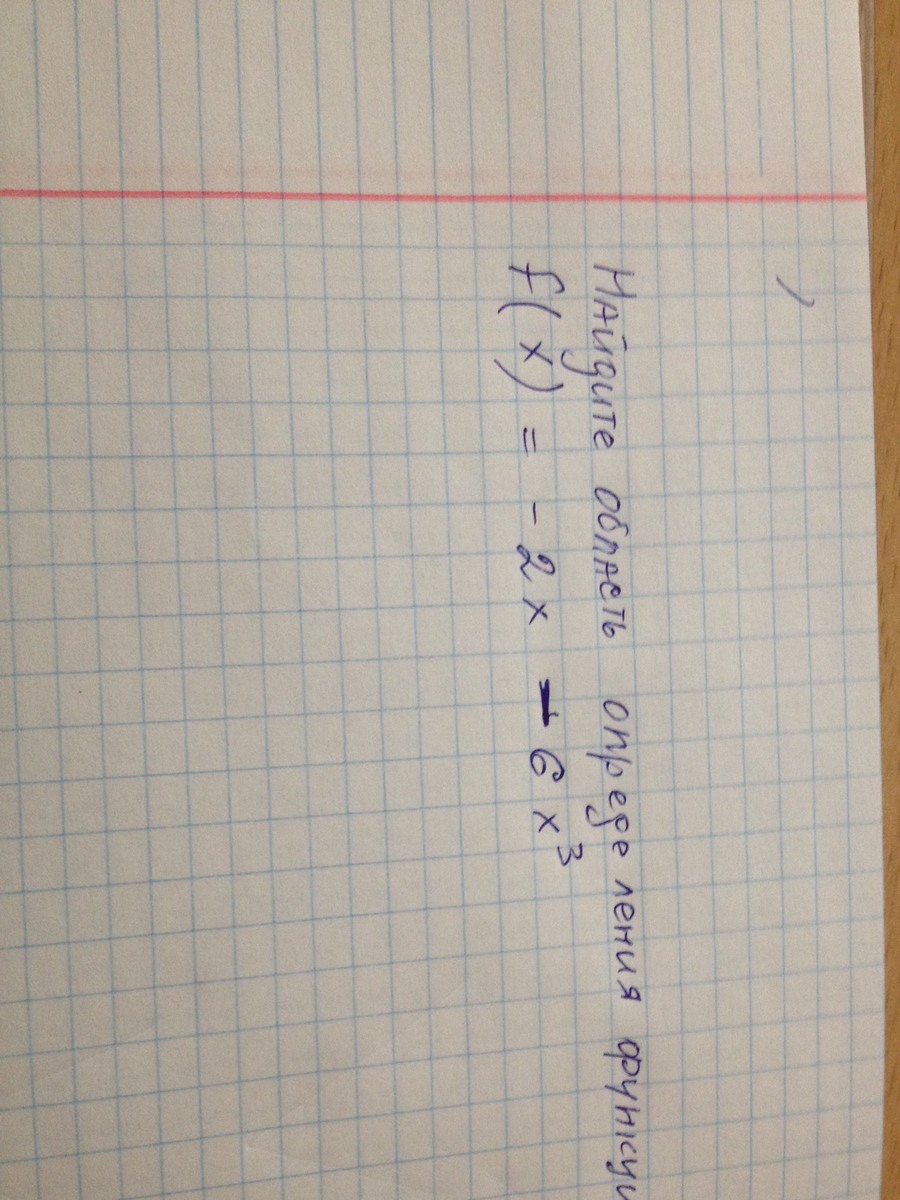 Найдите область определения функци
f(x) = - 2x - 6x³